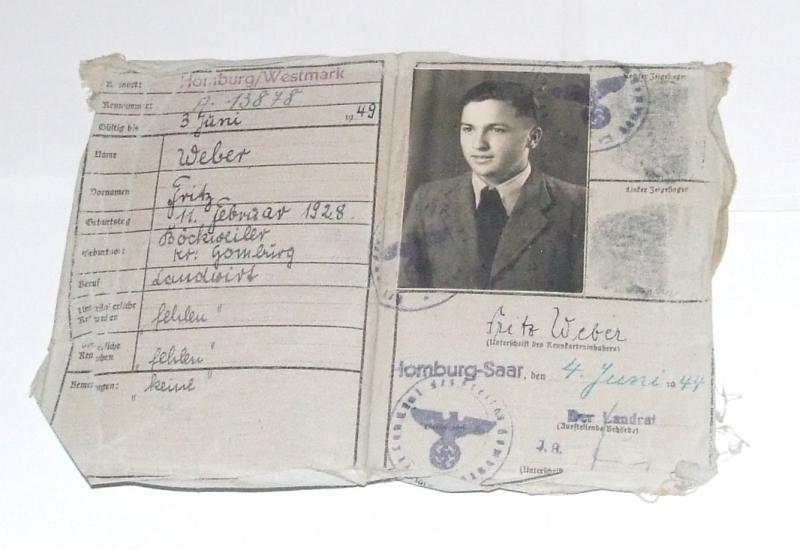 Homburg/Westmark
Kennummer: A. 13878
Gültig bis 3 Juni 1949
Name Weber
Vornamen Fritz
Geburtstag 11. Februar 1928.
Geburtsort Böckweiler
Kr. Homburg
Beruf Landwirt
fehlen "
fehlen "
" keine "
Rechter Zeigefinger
Linker Zeigefinger
Fritz Weber
(Unterschrift des Kennkarteninhabers)
Homburg-Saar, den 4. Juni 1944
Der Landrat
(Ausstellende Behörde)
J.A.
(Unterschrift